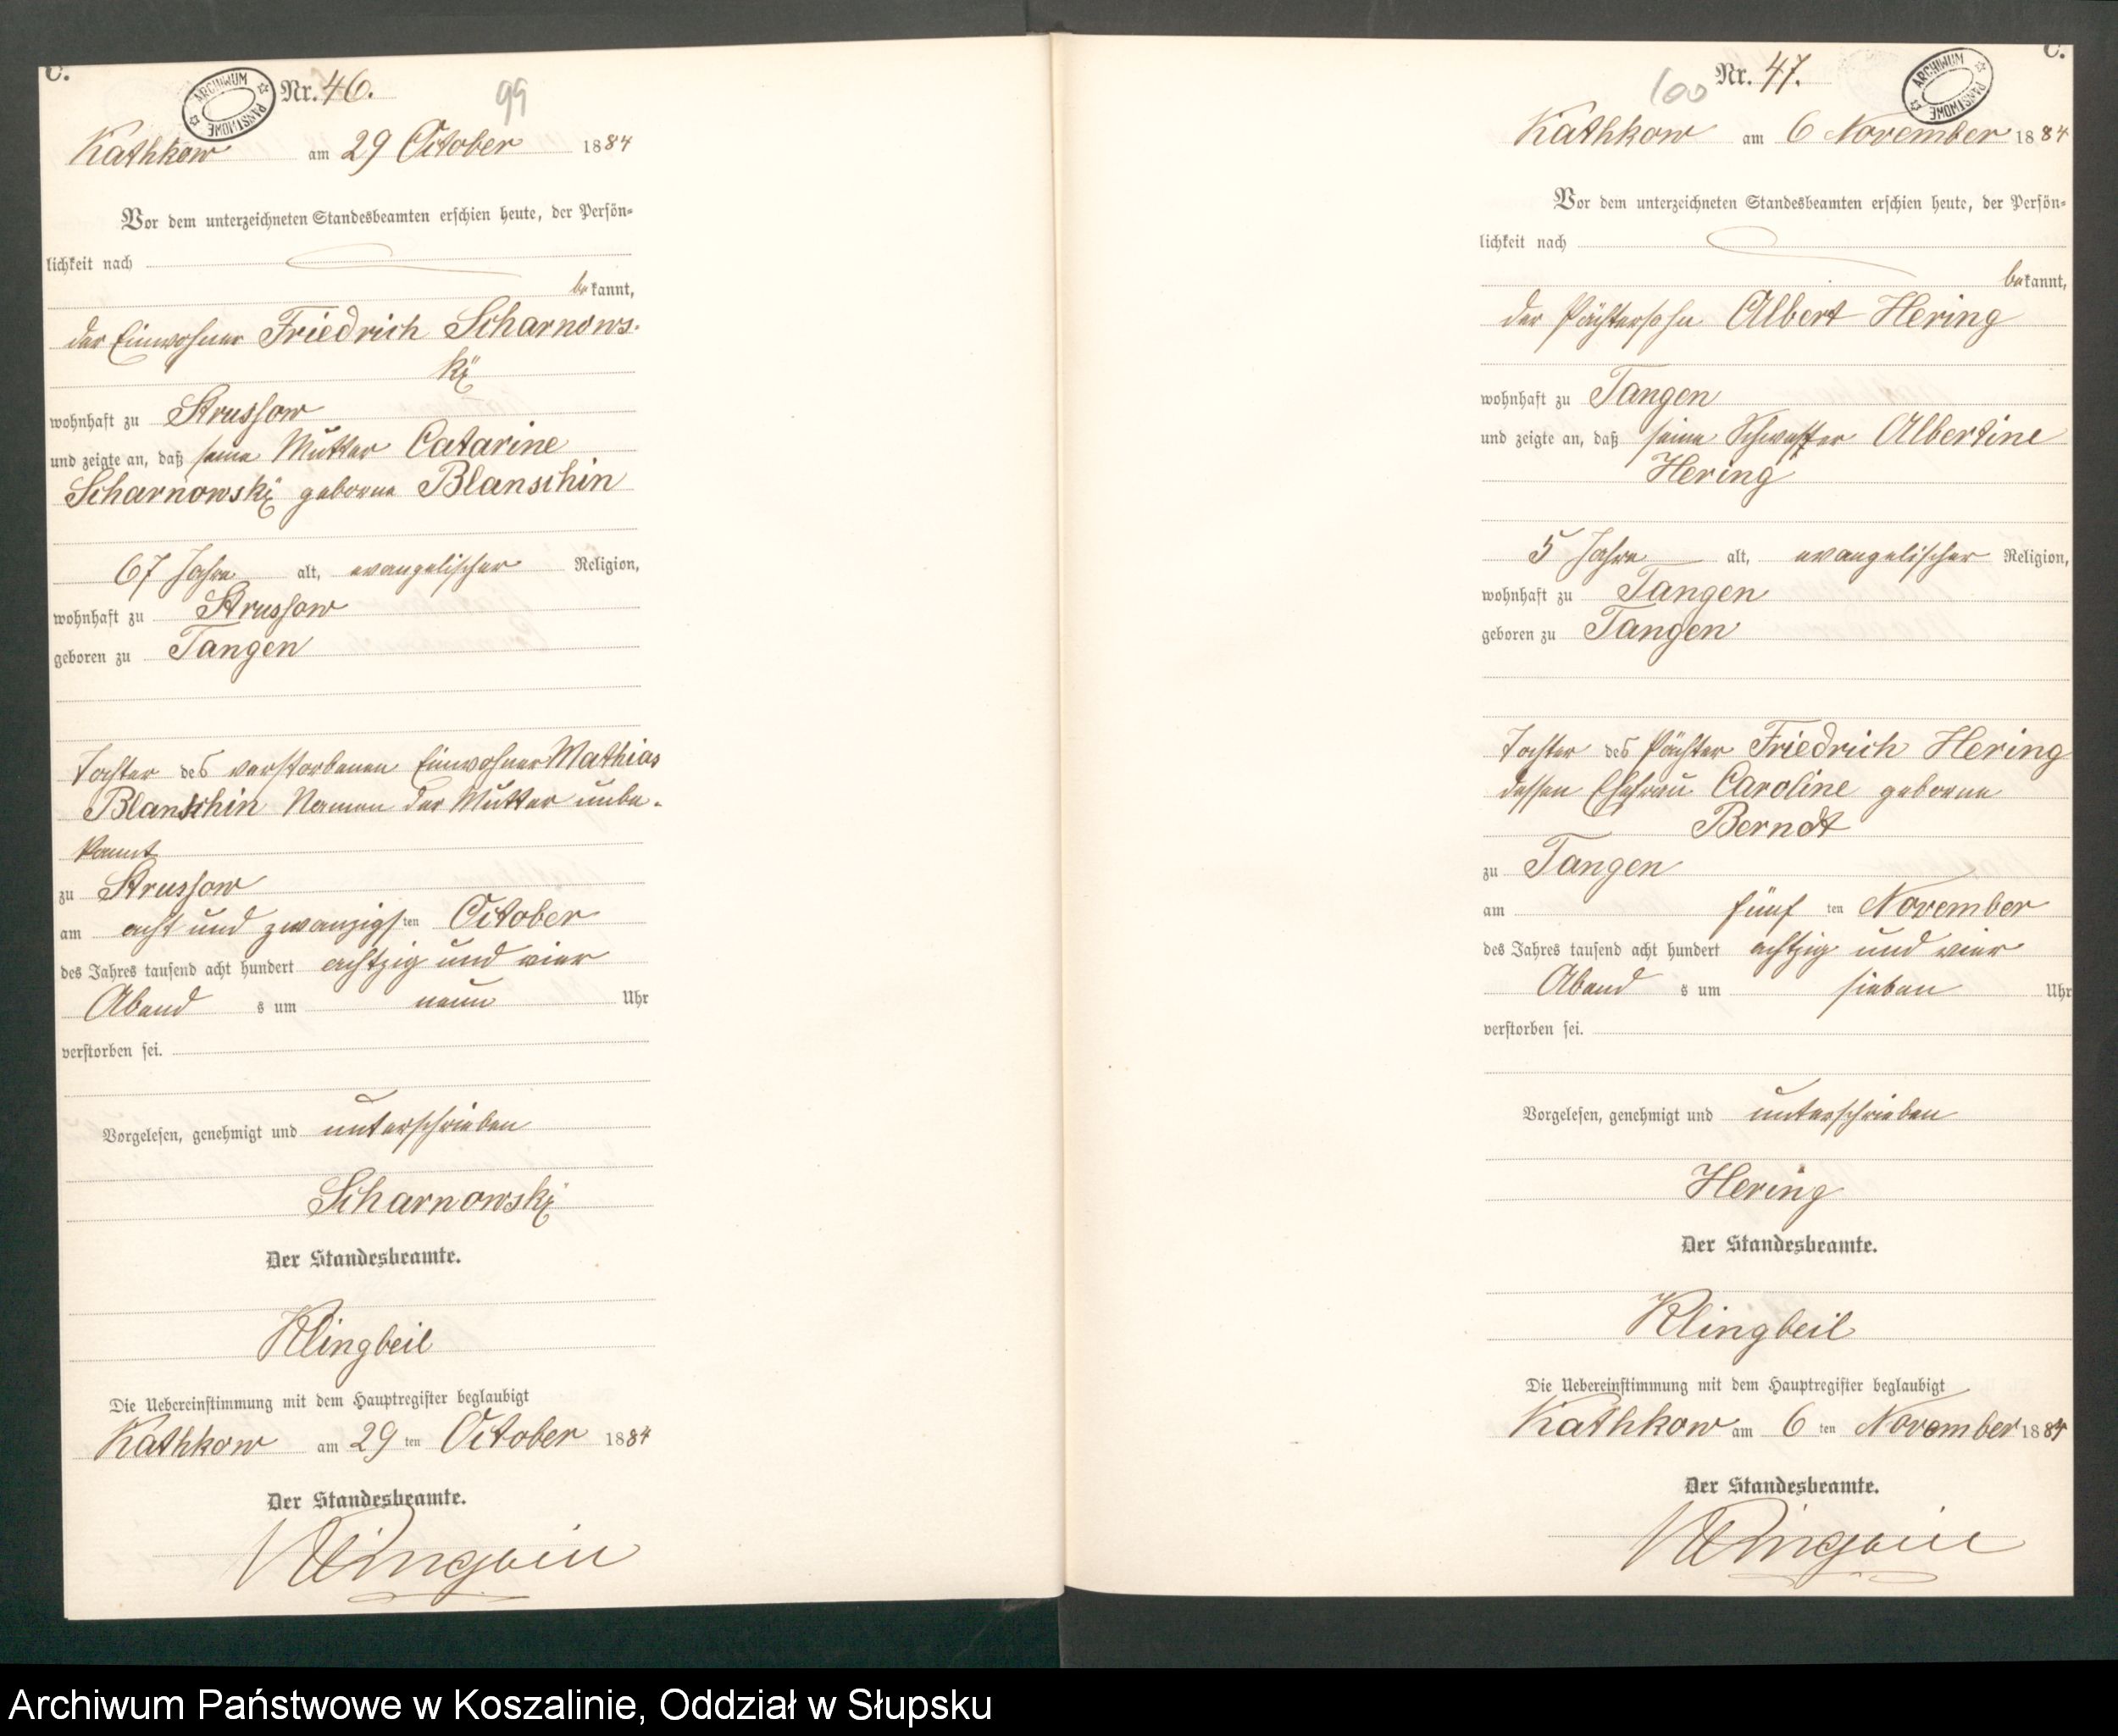 C.
ARCHIWUM PAŃSTWOWE
Nr. 46.
99
Kathkow am 29 October 1884
Vor dem unterzeichneten Standesbeamten erschien heute, der Persön-
lichkeit nach
bekannt,
der Einwohner Friedrich Scharnows-
ki
wohnhaft zu Strussow
und zeigte an, daß seine Mutter Catarine
Scharnowski geborne Blanschin
67 Jahre alt, evangelischer Religion,
wohnhaft zu Strussow
geboren zu Tangen
Tochter des verstorbenen Einwohner Mathias
Blanschin Namen der Mutter unbe-
kannt
zu Strussow
am acht und zwanzigsten October
des Jahres tausend acht hundert achtzig und vier
Abend s um neun Uhr
verstorben sei.
Vorgelesen, genehmigt und unterschrieben
Scharnowski
Der Standesbeamte.
Klingbeil
Die Uebereinstimmung mit dem Hauptregister beglaubigt
Kathkow am 29 ten October 1884
Der Standesbeamte.
Klingbeil
C.
ARCHIWUM PAŃSTWOWE
Nr. 47.
100
Kathkow am 6 November 1884
Vor dem unterzeichneten Standesbeamten erschien heute, der Persön-
lichkeit nach
bekannt,
der Pächtersohn Albert Hering
wohnhaft zu Tangen
und zeigte an, daß seine Schwester Albertine
Hering
5 Jahre alt, evangelischer Religion,
wohnhaft zu Tangen
geboren zu Tangen
Tochter des Pächter Friedrich Hering
dessen Ehefrau Caroline geborne
Berndt
zu Tangen
am fünf ten November
des Jahres tausend acht hundert achtzig und vier
Abend s um sieben Uhr
verstorben sei.
Vorgelesen, genehmigt und unterschrieben
Hering
Der Standesbeamte.
Klingbeil
Die Uebereinstimmung mit dem Hauptregister beglaubigt
Kathkow am 6 ten November 1884
Der Standesbeamte.
Klingbeil
Archiwum Państwowe w Koszalinie, Oddział w Słupsku